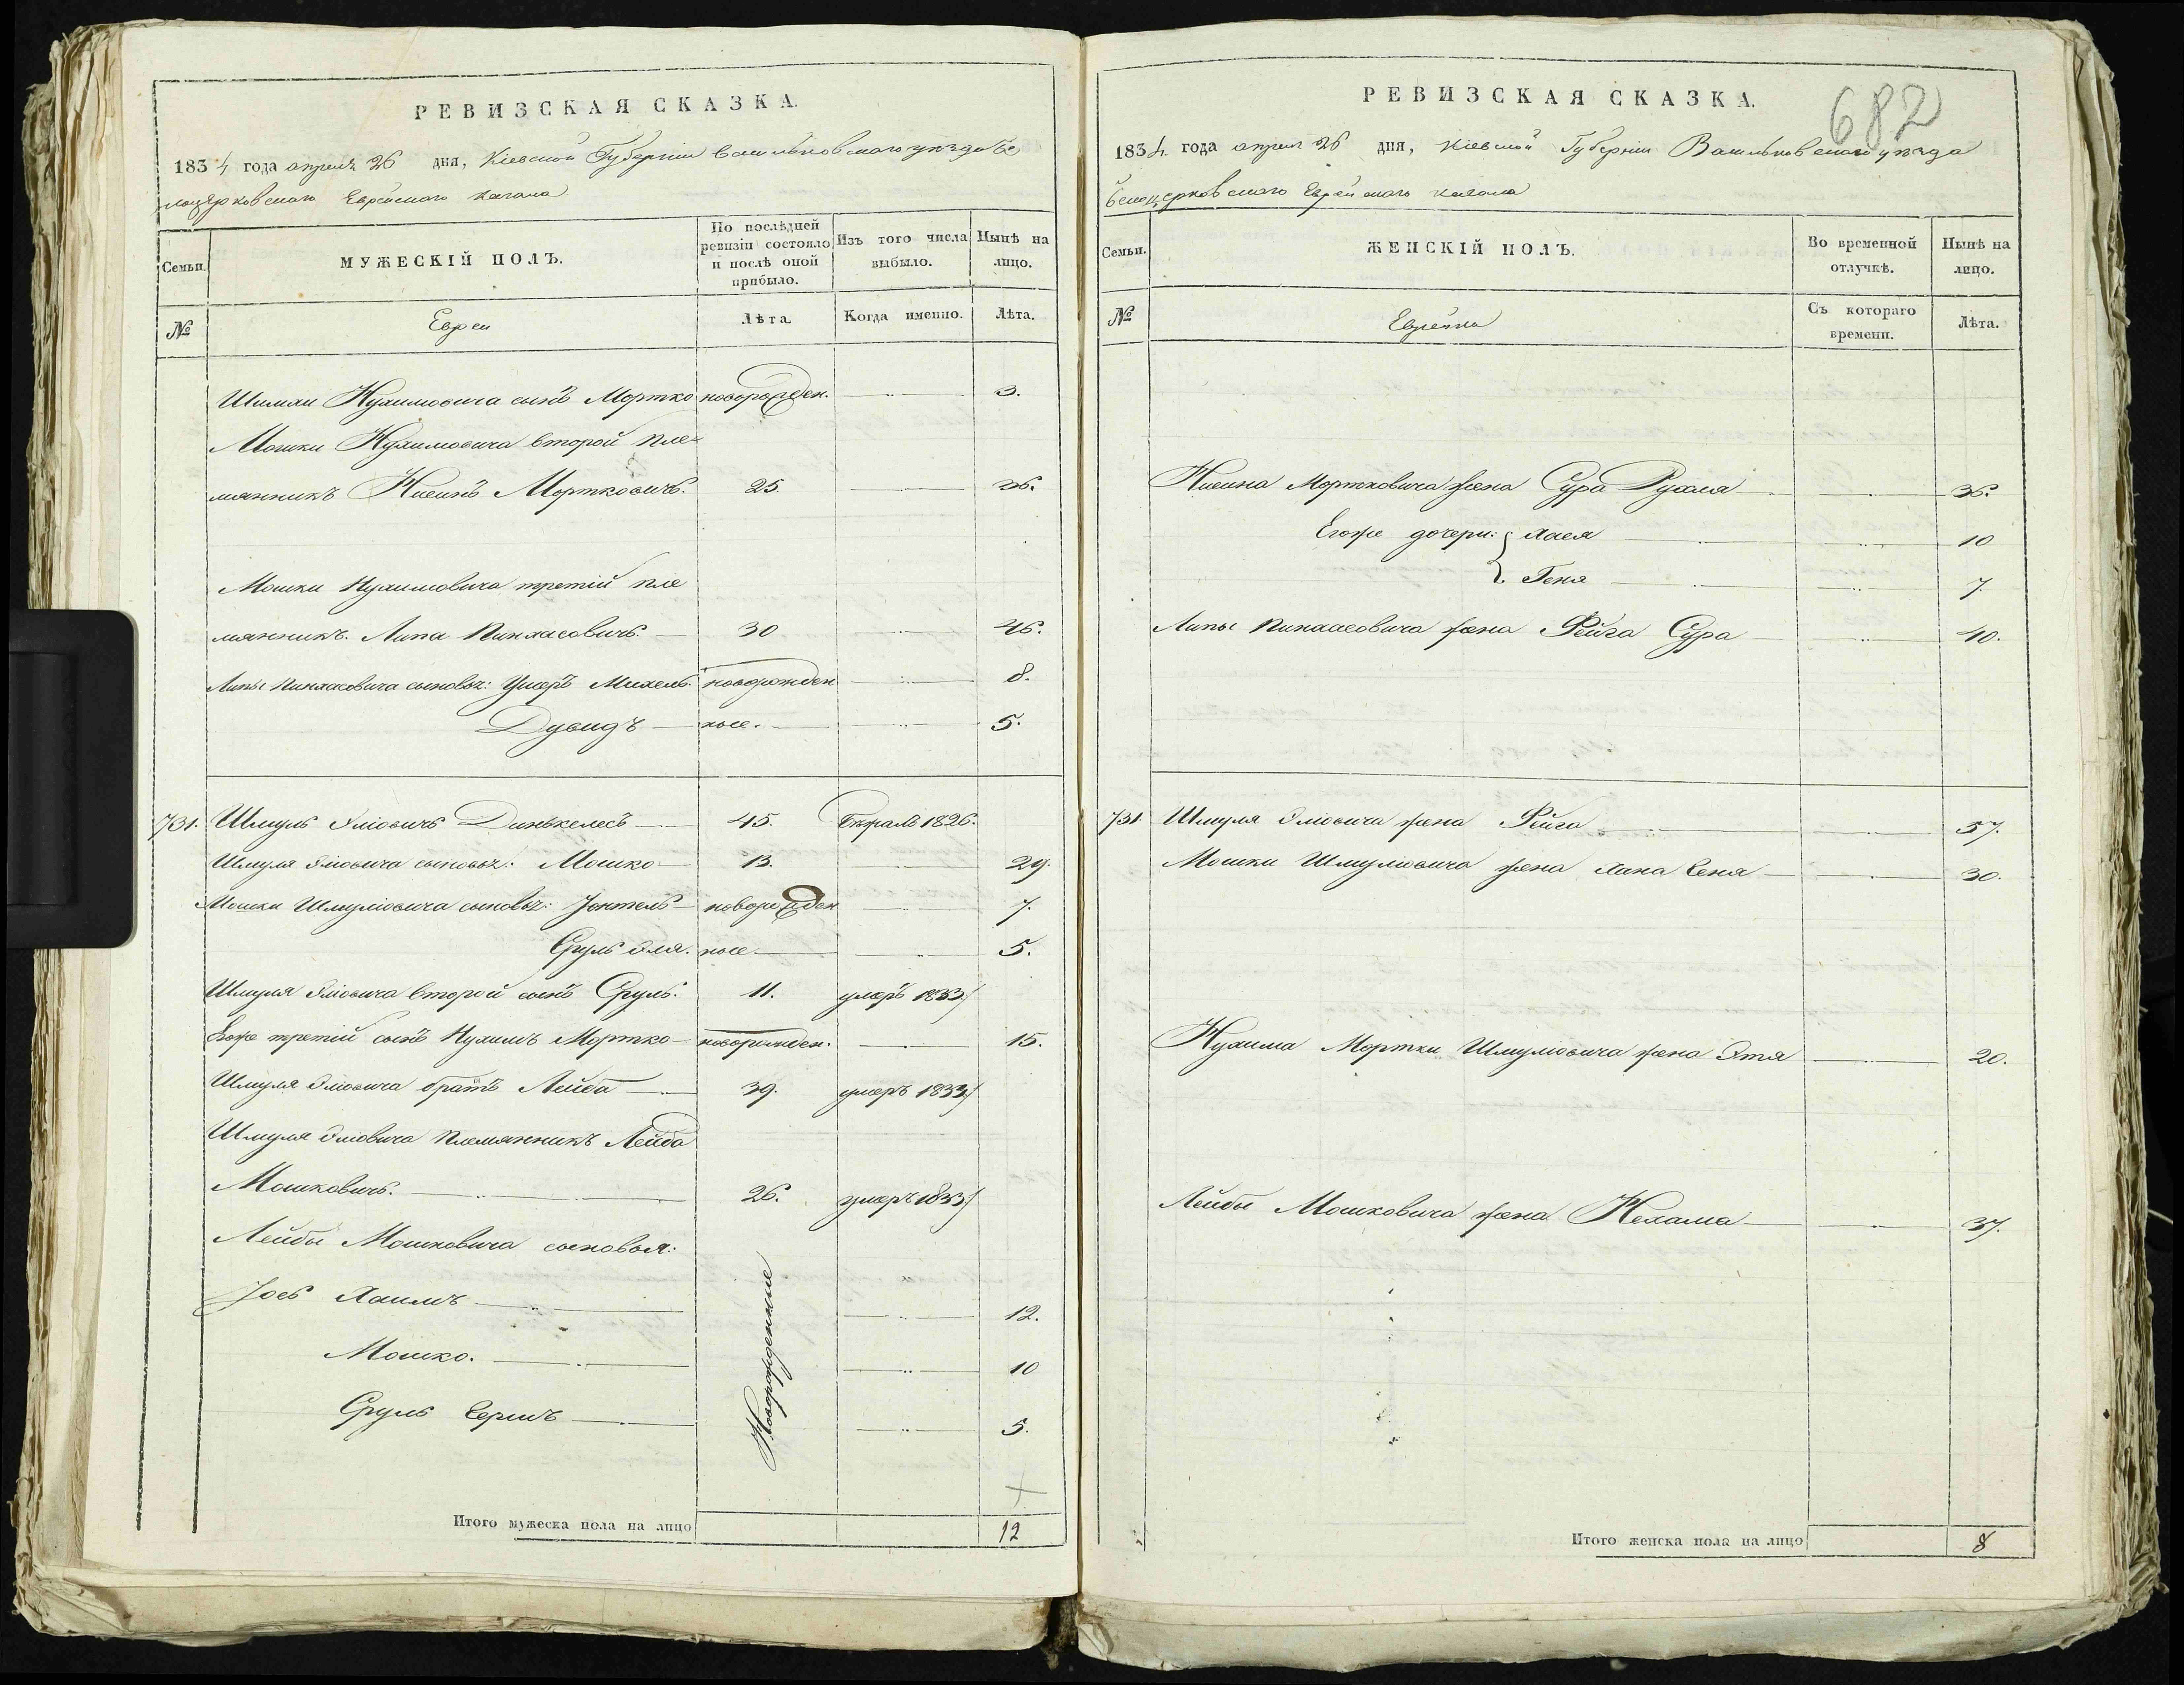 РЕВИЗСКАЯ СКАЗКА.
1834 года апреля 26 дня, Кіевской Губерніи Васильковскаго уѣзда Бе
лоцерковскаго Еврейскаго кагала
Семьи.
МУЖЕСКІЙ ПОЛЪ.
По послѣдней ревизіи состояло и послѣ оной прибыло.
Изъ того числа выбыло.
Нынѣ на лицо.
№
Евреи
Лѣта.
Когда именно.
Лѣта.
Шимхи Нухимовича сынъ Мортко новорожден. 3.
Мошки Нухимовича второй пле
мянникъ Нисинъ Мортковичъ. 25. 36.
Мошки Нухимовича третій пле
мянникъ Липа Пинхасовичъ. 30 46.
Липы Пинхасовича сыновья: Ушеръ Михель. новорожден 8.
Дувидъ ные. 5.
731. Шмуль Эліовичъ 45. 1826.
Шмуля Эліовича сыновья: Мошко 13. 29.
Мошки Шмуліовича сыновья: Іонтель новорожден 7.
Сруль Эля. ные 5.
Шмуля Эліовича второй сынъ Сруль. 11. умеръ 1833
Егоже третій сынъ Нухимъ Мортко новорожден. 15.
Шмуля Эліовича братъ Лейба 39. умеръ 1833
Шмуля Эліовича племянникъ Лейба
Мошковичъ. 26. умеръ 1833
Лейбы Мошковича сыновья:
Іось Хаимъ 12.
Мошко. 10
Сруль Бершъ 5.
Новорожденные
Итого мужеска пола на лицо 12
682
РЕВИЗСКАЯ СКАЗКА.
1834 года апреля 26 дня, Кіевской Губерніи Васильковскаго уѣзда
белоцерковскаго Еврейскаго кагала
Семьи.
ЖЕНСКІЙ ПОЛЪ.
Во временной отлучкѣ.
Нынѣ на лицо.
№
Еврейки
Съ котораго времени.
Лѣта.
Нисина Мортковича жена Сура Рухля 36.
Егоже дочери: Хася 10
Геня 7.
Липы Пинхасовича жена Фейга Сура 40.
731. Шмуля Эліовича жена Фейга 57.
Мошки Шмуліовича жена Хана Беня 30.
Нухима Мортки Шмуліовича жена Этя 20.
Лейбы Мошковича жена Нехама 37.
Итого женска пола на лицо 8